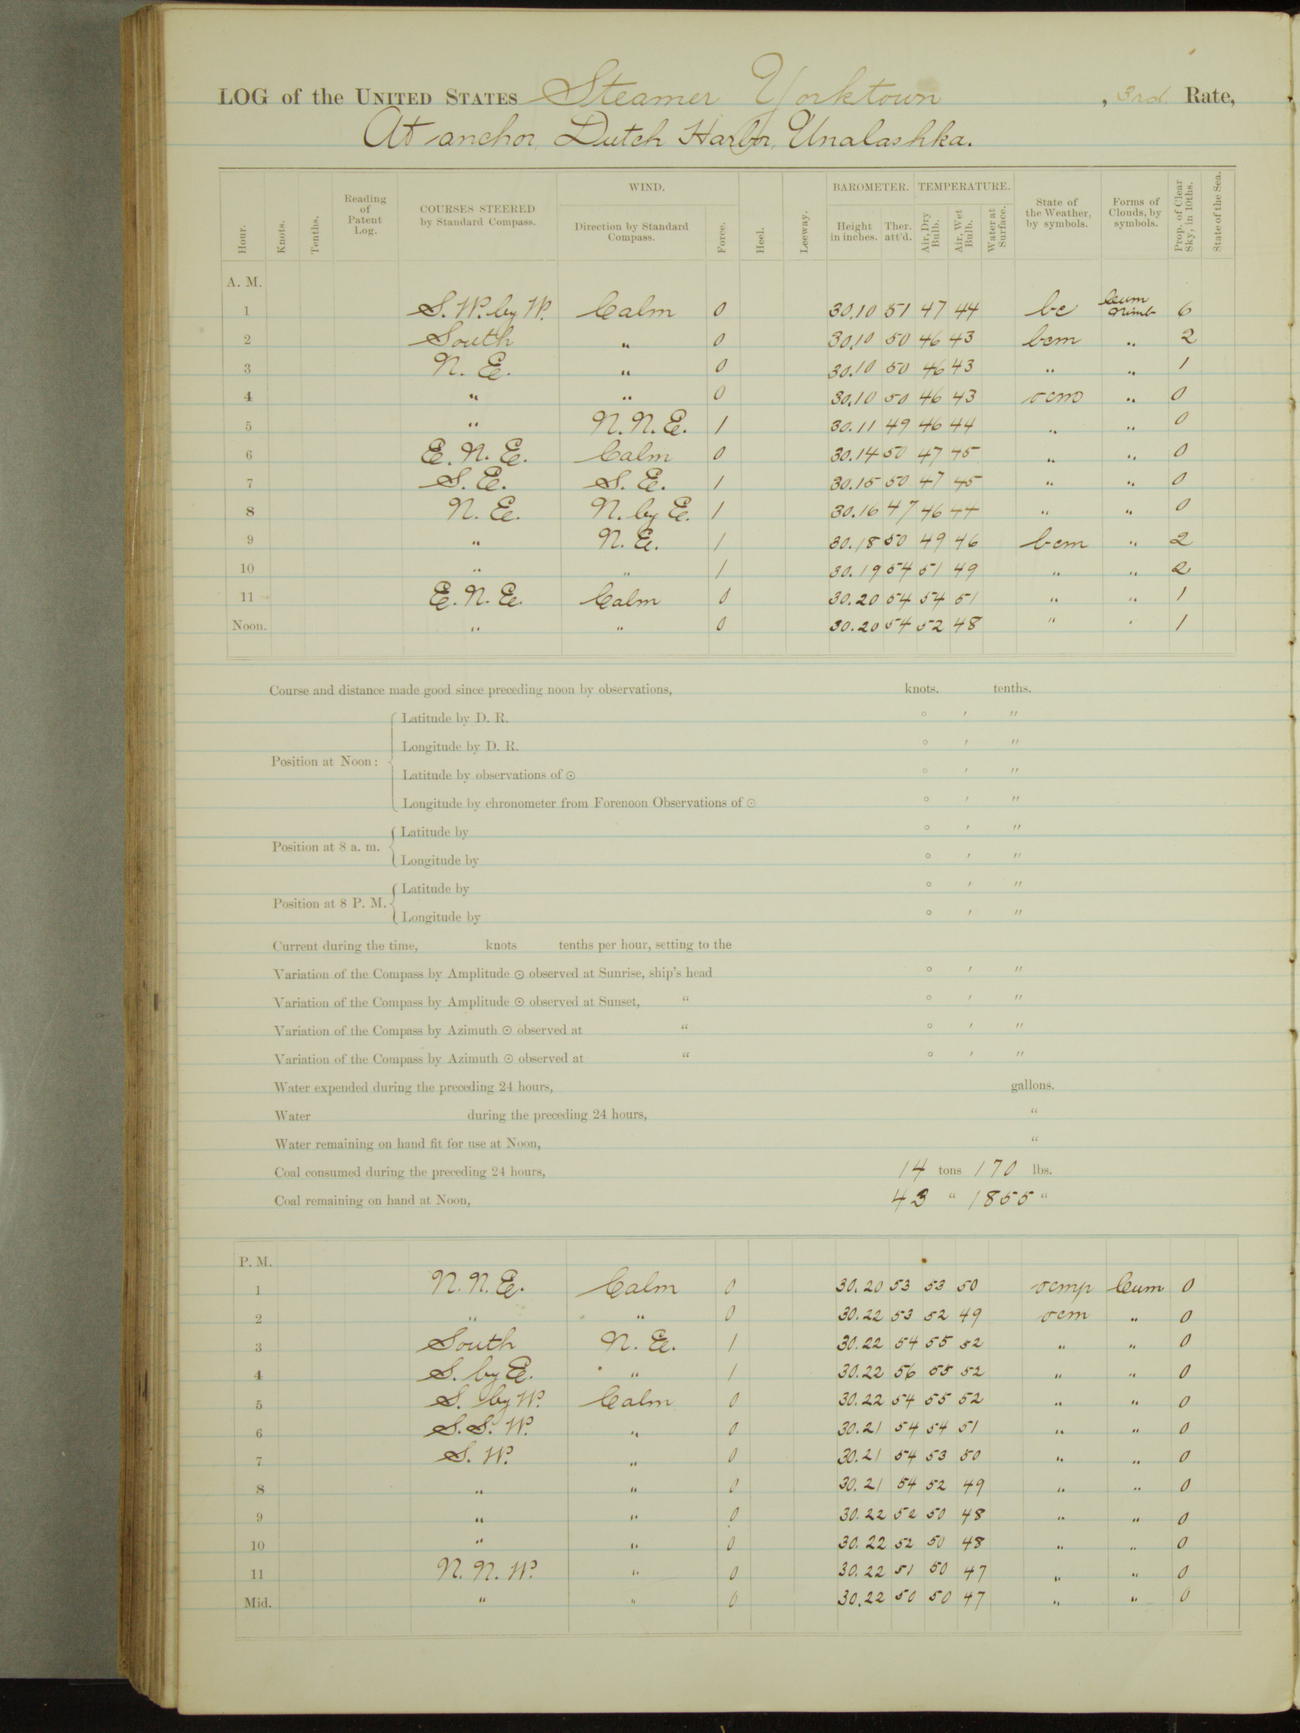 LOG of the UNITED STATES Steamer Yorktown, 3rd Rate,
At anchor, Dutch Harbor, Unalashka.
Hour. Knots. Tenths. Reading of Patent Log. COURSES STEERED by Standard Compass. WIND. Direction by Standard Compass. Force. Heel. Leeway. BAROMETER. Height in inches. Ther. att'd. TEMPERATURE. Air, Dry Bulb. Air, Wet Bulb. Water at Surface. State of the Weather, by symbols. Forms of Clouds, by symbols. Prop. of Clear Sky, in 10ths. State of the Sea.
A. M.
1 S. W. by W. Calm 0 30.10 51 47 44 bc Cum Nimb 6
2 South " 0 30.10 50 46 43 bcm " 2
3 N. E. " 0 30.10 50 46 43 " " 1
4 " " 0 30.10 50 46 43 ocm " 0
5 " N. N. E. 1 30.11 49 46 44 " " 0
6 E. N. E. Calm 0 30.14 50 47 45 " " 0
7 S. E. S. E. 1 30.15 50 47 45 " " 0
8 N. E. N. by E. 1 30.16 47 46 44 " " 0
9 " N. E. 1 30.18 50 49 46 bcm " 2
10 " " 1 30.19 54 51 49 " " 2
11 E. N. E. Calm 0 30.20 54 54 51 " " 1
Noon. " " 0 30.20 54 52 48 " " 1
Course and distance made good since preceding noon by observations, knots. tenths.
Position at Noon:
Latitude by D. R. ° ′ ″
Longitude by D. R. ° ′ ″
Latitude by observations of ⊙ ° ′ ″
Longitude by chronometer from Forenoon Observations of ⊙ ° ′ ″
Position at 8 a. m.
Latitude by ° ′ ″
Longitude by ° ′ ″
Position at 8 P. M.
Latitude by ° ′ ″
Longitude by ° ′ ″
Current during the time, knots tenths per hour, setting to the
Variation of the Compass by Amplitude ⊙ observed at Sunrise, ship's head ° ′ ″
Variation of the Compass by Amplitude ⊙ observed at Sunset, " ° ′ ″
Variation of the Compass by Azimuth ⊙ observed at " ° ′ ″
Variation of the Compass by Azimuth ⊙ observed at " ° ′ ″
Water expended during the preceding 24 hours, gallons.
Water during the preceding 24 hours, "
Water remaining on hand fit for use at Noon, "
Coal consumed during the preceding 24 hours, 14 tons 170 lbs.
Coal remaining on hand at Noon, 43 " 1855 "
P. M.
1 N. N. E. Calm 0 30.20 53 53 50 ocmp Cum 0
2 " " 0 30.22 53 52 49 ocm " 0
3 South N. E. 1 30.22 54 55 52 " " 0
4 S. by E. " 1 30.22 56 55 52 " " 0
5 S. by W. Calm 0 30.22 54 55 52 " " 0
6 S. S. W. " 0 30.21 54 54 51 " " 0
7 S. W. " 0 30.21 54 53 50 " " 0
8 " " 0 30.21 54 52 49 " " 0
9 " " 0 30.22 52 50 48 " " 0
10 " " 0 30.22 52 50 48 " " 0
11 N. N. W. " 0 30.22 51 50 47 " " 0
Mid. " " 0 30.22 50 50 47 " " 0